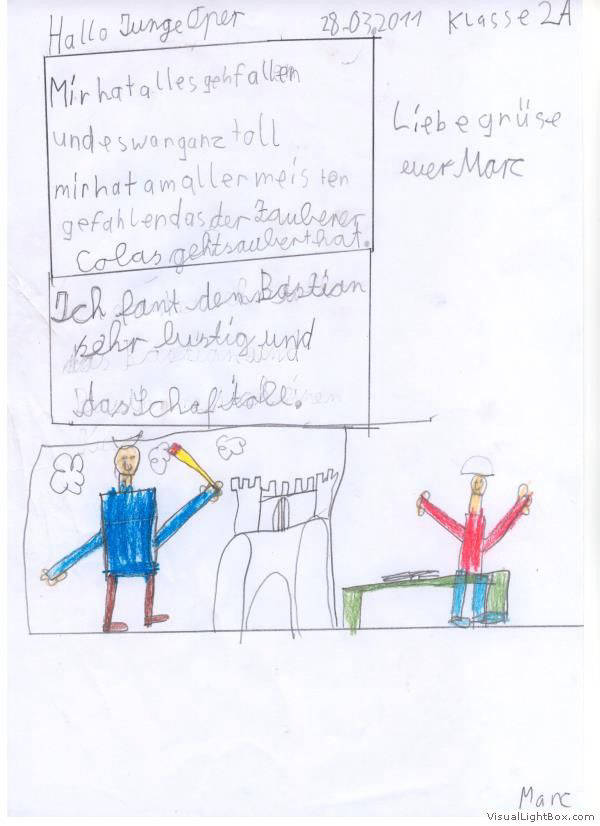 Hallo Junge Oper 28.03.2011 Klasse 2A
Mir hat alles gehfallen
und es war ganz toll
mir hat am aller meis ten
gefahlen das der Zauberer
Colas gehtsaubert hat.
Ich fant den Bastian
sehr lustig und
das Schaf toll.
Liebe grüse
euer Marc
Marc
VisualLightBox.com